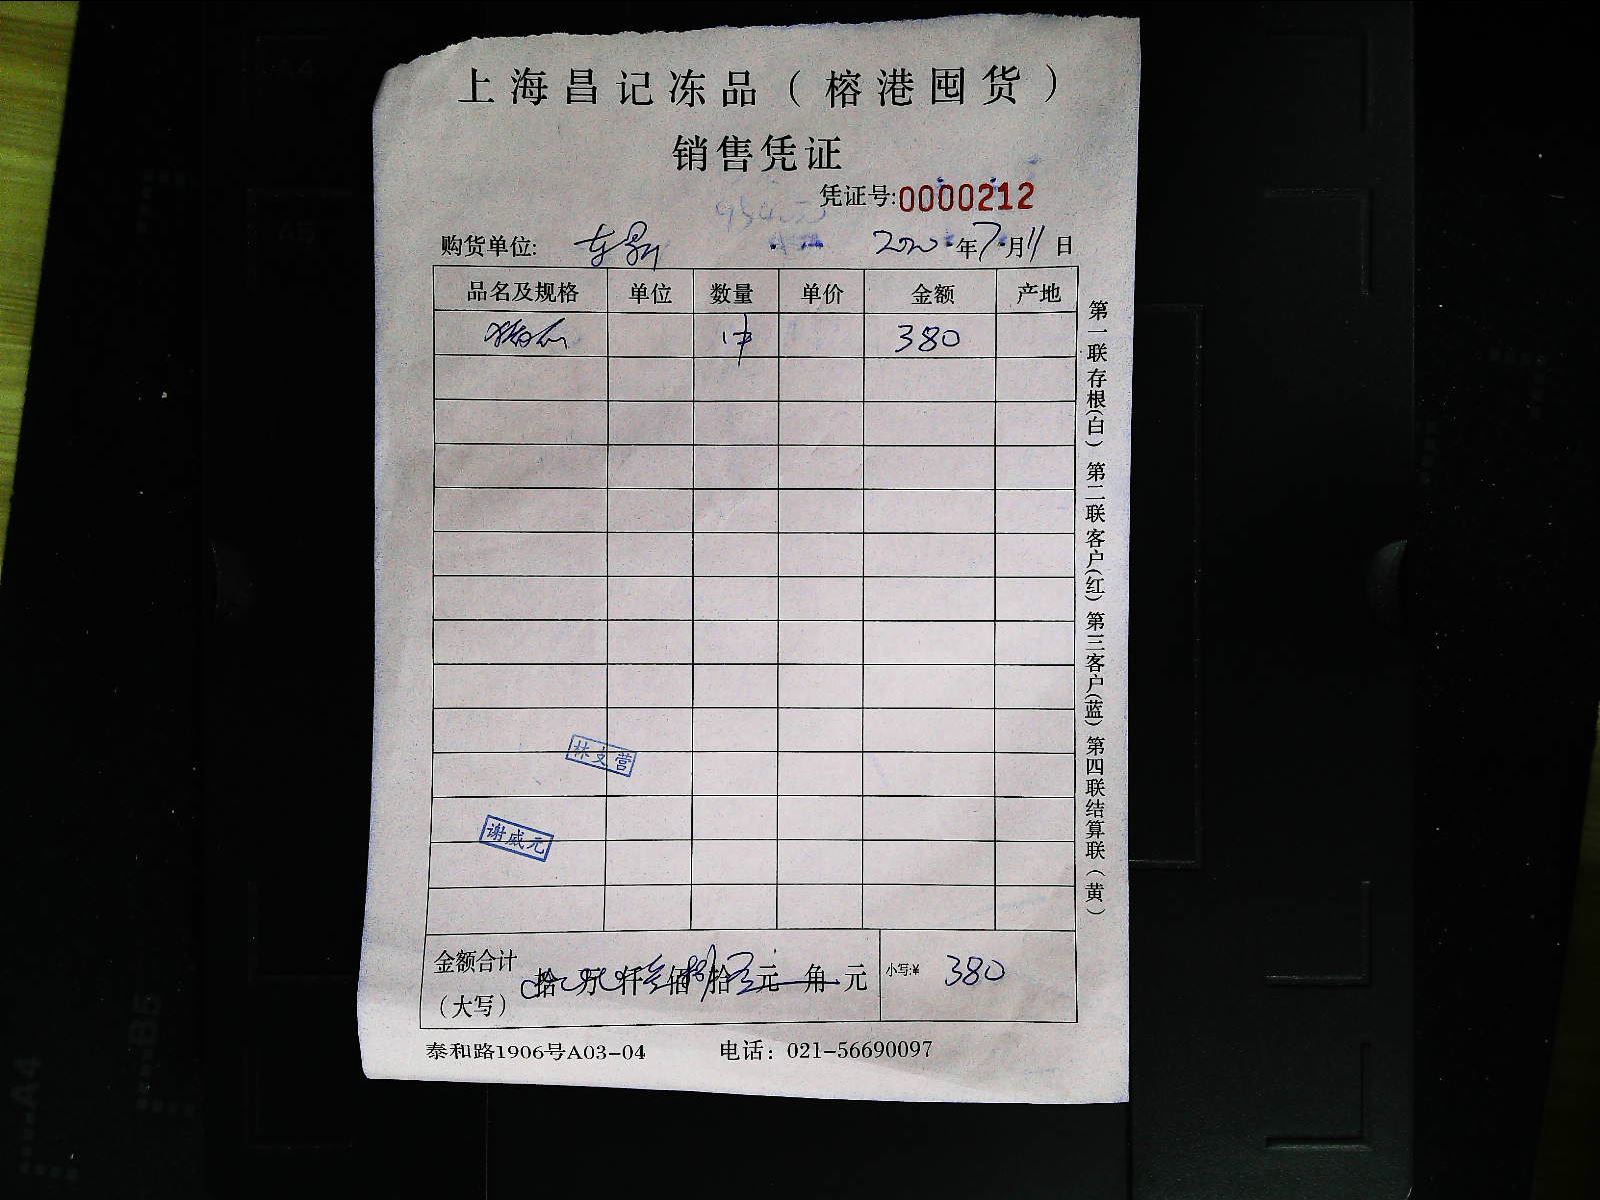 上海昌记冻品（榕港囤货）
销售凭证
凭证号:0000212
购货单位: 2020年7月11日
品名及规格 单位 数量 单价 金额 产地
1件 380
林文营
谢威元
金额合计（大写） 拾 万 仟叁佰捌拾 元 角 元 小写:¥ 380
泰和路1906号A03-04 电话：021-56690097
第一联存根(白) 第二联客户(红) 第三客户(蓝) 第四联结算联(黄)